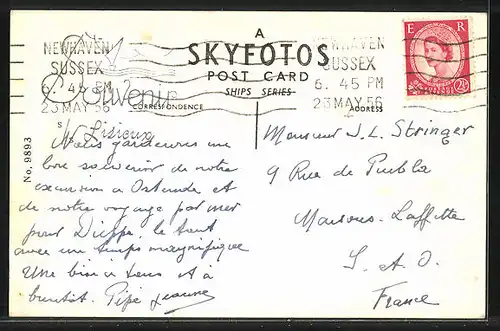 A
SKYFOTOS
POST CARD
SHIPS SERIES
CORRESPONDENCE
ADDRESS
NEWHAVEN
SUSSEX
6.45 PM
23 MAY 56
NEWHAVEN
SUSSEX
6.45 PM
23 MAY 56
E R
2½
Souvenir
"Lisieux
Nous garderons un
bon souvenir de notre
excursion a Ostende et
de notre voyage par mer
pour Dieppe. le tout
avec un temps magnifique
Une bise a tous et à
bientôt. Pépé Jeanne
Monsieur J. L. Stringer
9 Rue de Puebla
Maisons-Laffitte
S. et O.
France
No. 9893